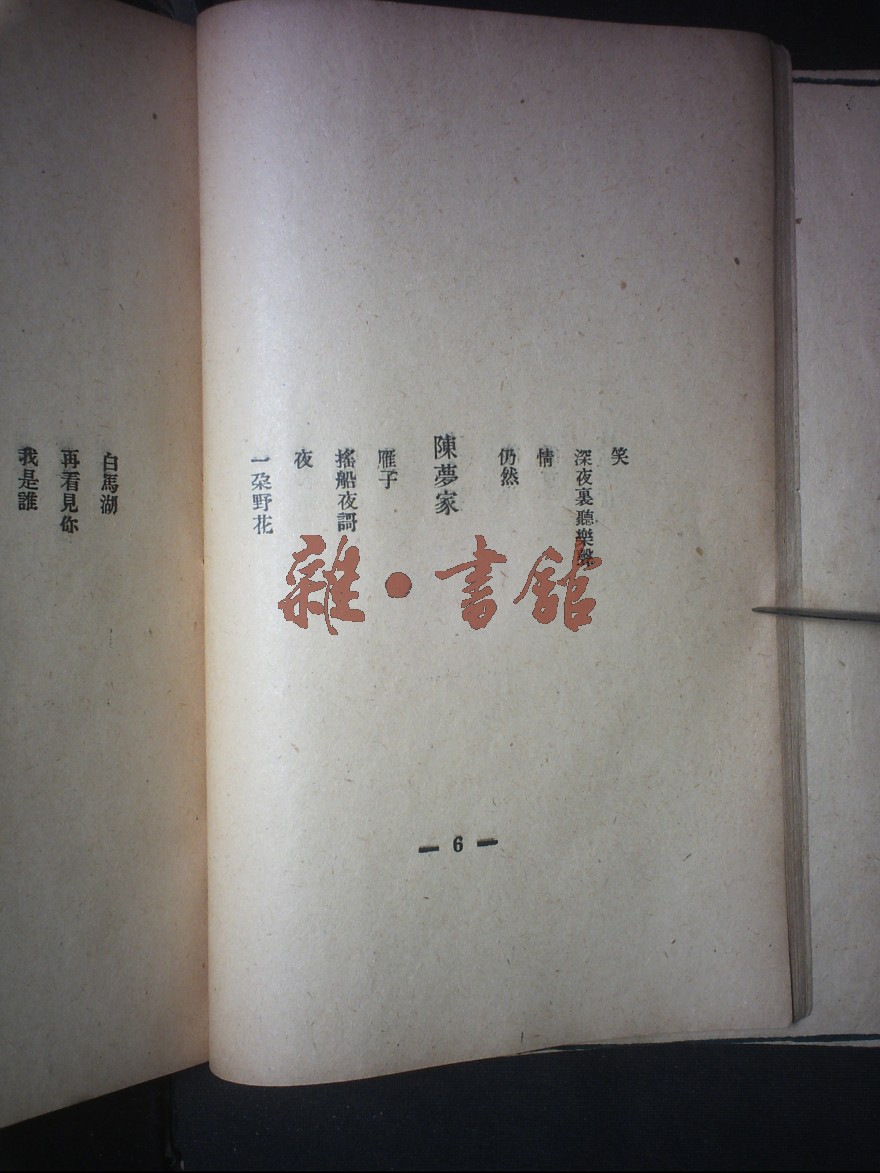 笑
深夜裏聽樂聲
情
仍然
陳夢家
雁子
搖船夜謌
夜
一朶野花
雜·書館
— 6 —
白馬湖
再看見你
我是誰